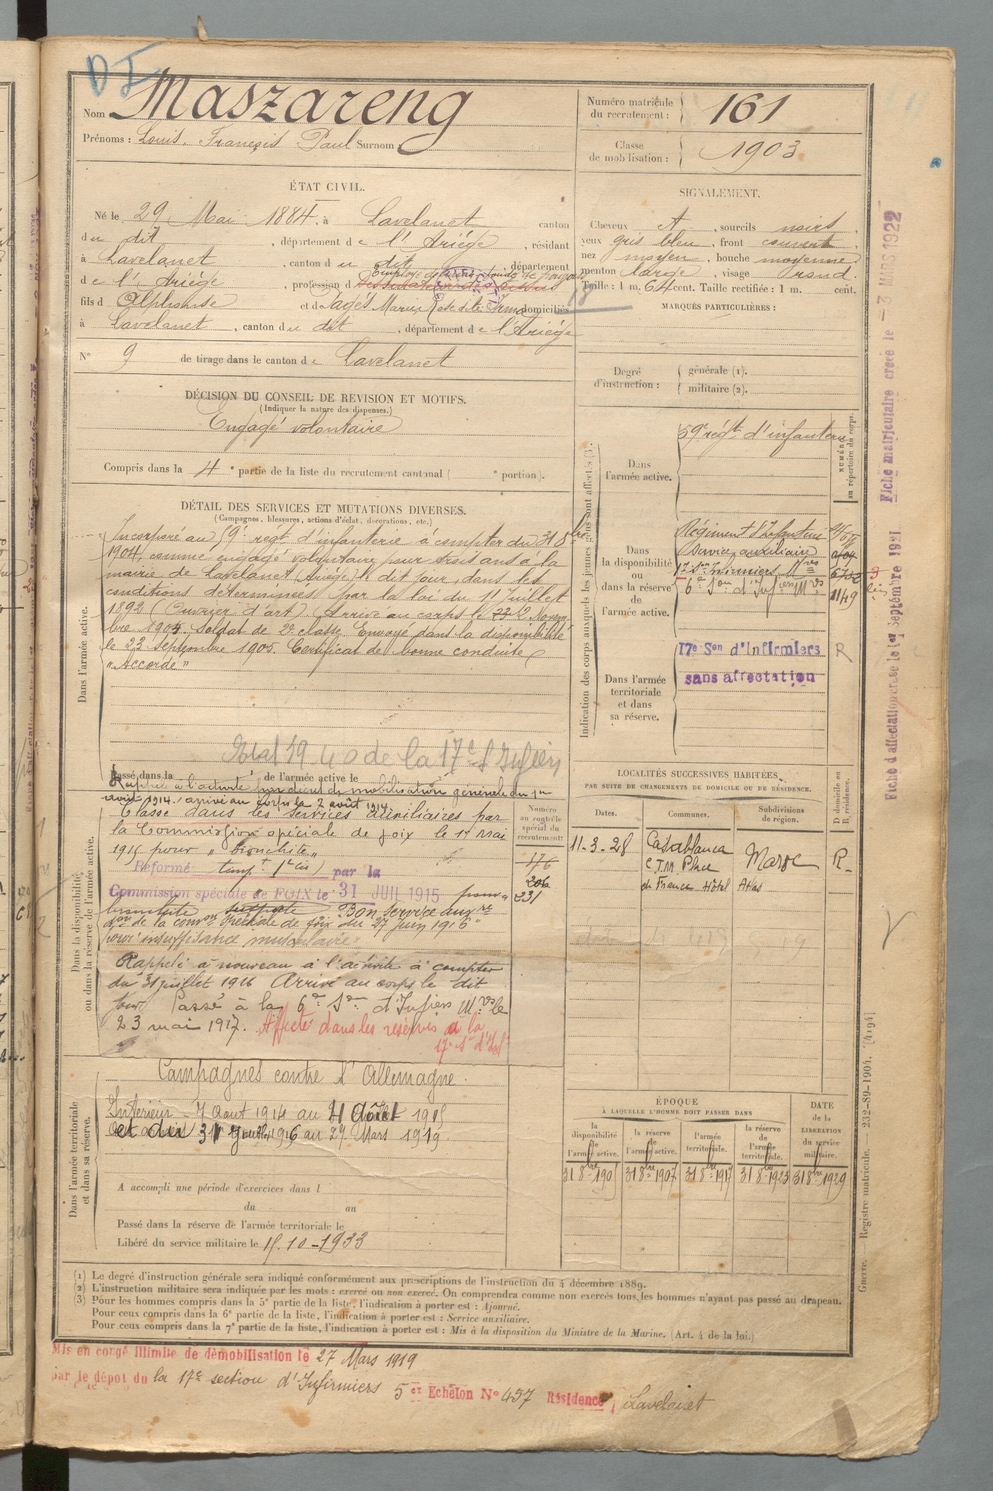 D I
Nom Maszareng
Prénoms : Louis François Paul Surnom
Numéro matricule du recrutement : 161
Classe de mobilisation : 1903
ÉTAT CIVIL.
Né le 29 Mai 1884, à Lavelanet canton
du dit, département de l'Ariège, résidant
à Lavelanet, canton du dit, département
de l'Ariège, profession d
fils d Alphonse et de Pagès Marie Rose domiciliés
à Lavelanet, canton du dit, département de l'Ariège
N° 9 de tirage dans le canton de Lavelanet
SIGNALEMENT.
Cheveux, sourcils noirs
yeux gris bleu, front couvert,
nez moyen, bouche moyenne
menton large, visage rond.
Taille : 1 m. 64 cent. Taille rectifiée : 1 m. cent.
MARQUES PARTICULIÈRES :
Degré d'instruction : générale (1).
militaire (2).
DÉCISION DU CONSEIL DE REVISION ET MOTIFS.
(Indiquer la nature des dispenses.)
Engagé volontaire
Compris dans la 4e partie de la liste du recrutement cantonal ( e portion).
DÉTAIL DES SERVICES ET MUTATIONS DIVERSES.
(Campagnes, blessures, actions d'éclat, décorations, etc.)
Dans l'armée active.
Incorporé au 59e régt d'infanterie à compter du 31 8bre
1904, comme engagé volontaire pour trois ans à la
mairie de Lavelanet (Ariège) le dit jour, dans les
conditions déterminées par la loi du 11 Juillet
1892 (Ouvrier d'art). Arrivé au corps le 2 Novem
bre 1904. Soldat de 2e classe. Envoyé dans la disponibilité
le 23 Septembre 1905. Certificat de bonne conduite
"Accordé"
de la 17e S Infiers
Passé dans la de l'armée active le
Rappelé à l'activité mobilisation générale du 1er
août 1914. arrivé au corps le 7 août 1914.
Classé dans les services auxiliaires par
la Commission spéciale de Foix le 17 mai
1915 pour "bronchite"
Réformé tempre par la
Commission spéciale de FOIX le 31 JUIL 1915 pour
bronchite Bon service auxre
don de la comon spéciale de Foix du 27 juin 1916
pour insuffisance musculaire.
Rappelé à nouveau à l'activité à compter
du 31 juillet 1916 Arrivé au corps le dit
jour Passé à la 6e Son d'Infiers Mres le
23 mai 1917. Affecté dans les réserves à la
17e Sn d'Inf
Dans la disponibilité
ou dans la réserve de l'armée active.
Numéro au contrôle spécial du recrutement:
176
206
231
Campagnes contre l'Allemagne.
Intérieur 7 Août 1914 au 4 Août 1915
et du 31 1916 au 27 Mars 1919.
Dans l'armée territoriale
et dans sa réserve.
A accompli une période d'exercices dans l
du au
Passé dans la réserve de l'armée territoriale le
Libéré du service militaire le 15-10-1933
Indication des corps auxquels les jeunes gens sont affectés (3).
Dans l'armée active.
59e régt d'infanterie
NUMÉRO au répertoire du corps.
Dans la disponibilité ou dans la réserve de l'armée active.
Régiment d'Infanterie
Service auxiliaire
17 Son Infirmiers Mres
6e Son d'Infiers Mres
1149
Dans l'armée territoriale et dans sa réserve.
17e Son d'Infirmiers R
sans affectation
LOCALITÉS SUCCESSIVES HABITÉES,
PAR SUITE DE CHANGEMENTS DE DOMICILE OU DE RÉSIDENCE.
Dates. Communes. Subdivisions de région. D domicile ou R résidence.
11-3-28 Casablanca Maroc R
Place
de France Hôtel Atlas
ÉPOQUE
À LAQUELLE L'HOMME DOIT PASSER DANS
DATE de la LIBÉRATION du service militaire.
la disponibilité de l'armée active. la réserve de l'armée active. l'armée territoriale. la réserve de l'armée territoriale.
31 8bre 1905 31 8bre 1907 31 8bre 1917 31 8bre 1923 31 8bre 1929
(1) Le degré d'instruction générale sera indiqué conformément aux prescriptions de l'instruction du 4 décembre 1889.
(2) L'instruction militaire sera indiquée par les mots : exercé ou non exercé. On comprendra comme non exercés tous les hommes n'ayant pas passé au drapeau.
(3) Pour les hommes compris dans la 5e partie de la liste, l'indication à porter est : Ajourné.
Pour ceux compris dans la 6e partie de la liste, l'indication à porter est : Service auxiliaire.
Pour ceux compris dans la 7e partie de la liste, l'indication à porter est : Mis à la disposition du Ministre de la Marine. (Art. 4 de la loi.)
Mis en congé illimité de démobilisation le 27 Mars 1919
par le dépôt du la 17e section d'Infirmiers 5e Echelon N° 457 Résidence, Lavelanet
Fiche matriculaire créée le -3 MARS 1922
Fiche d'affectation créée le 1er Septembre 1921
Guerre. — Registre matricule. 232-89-1904. [4194]